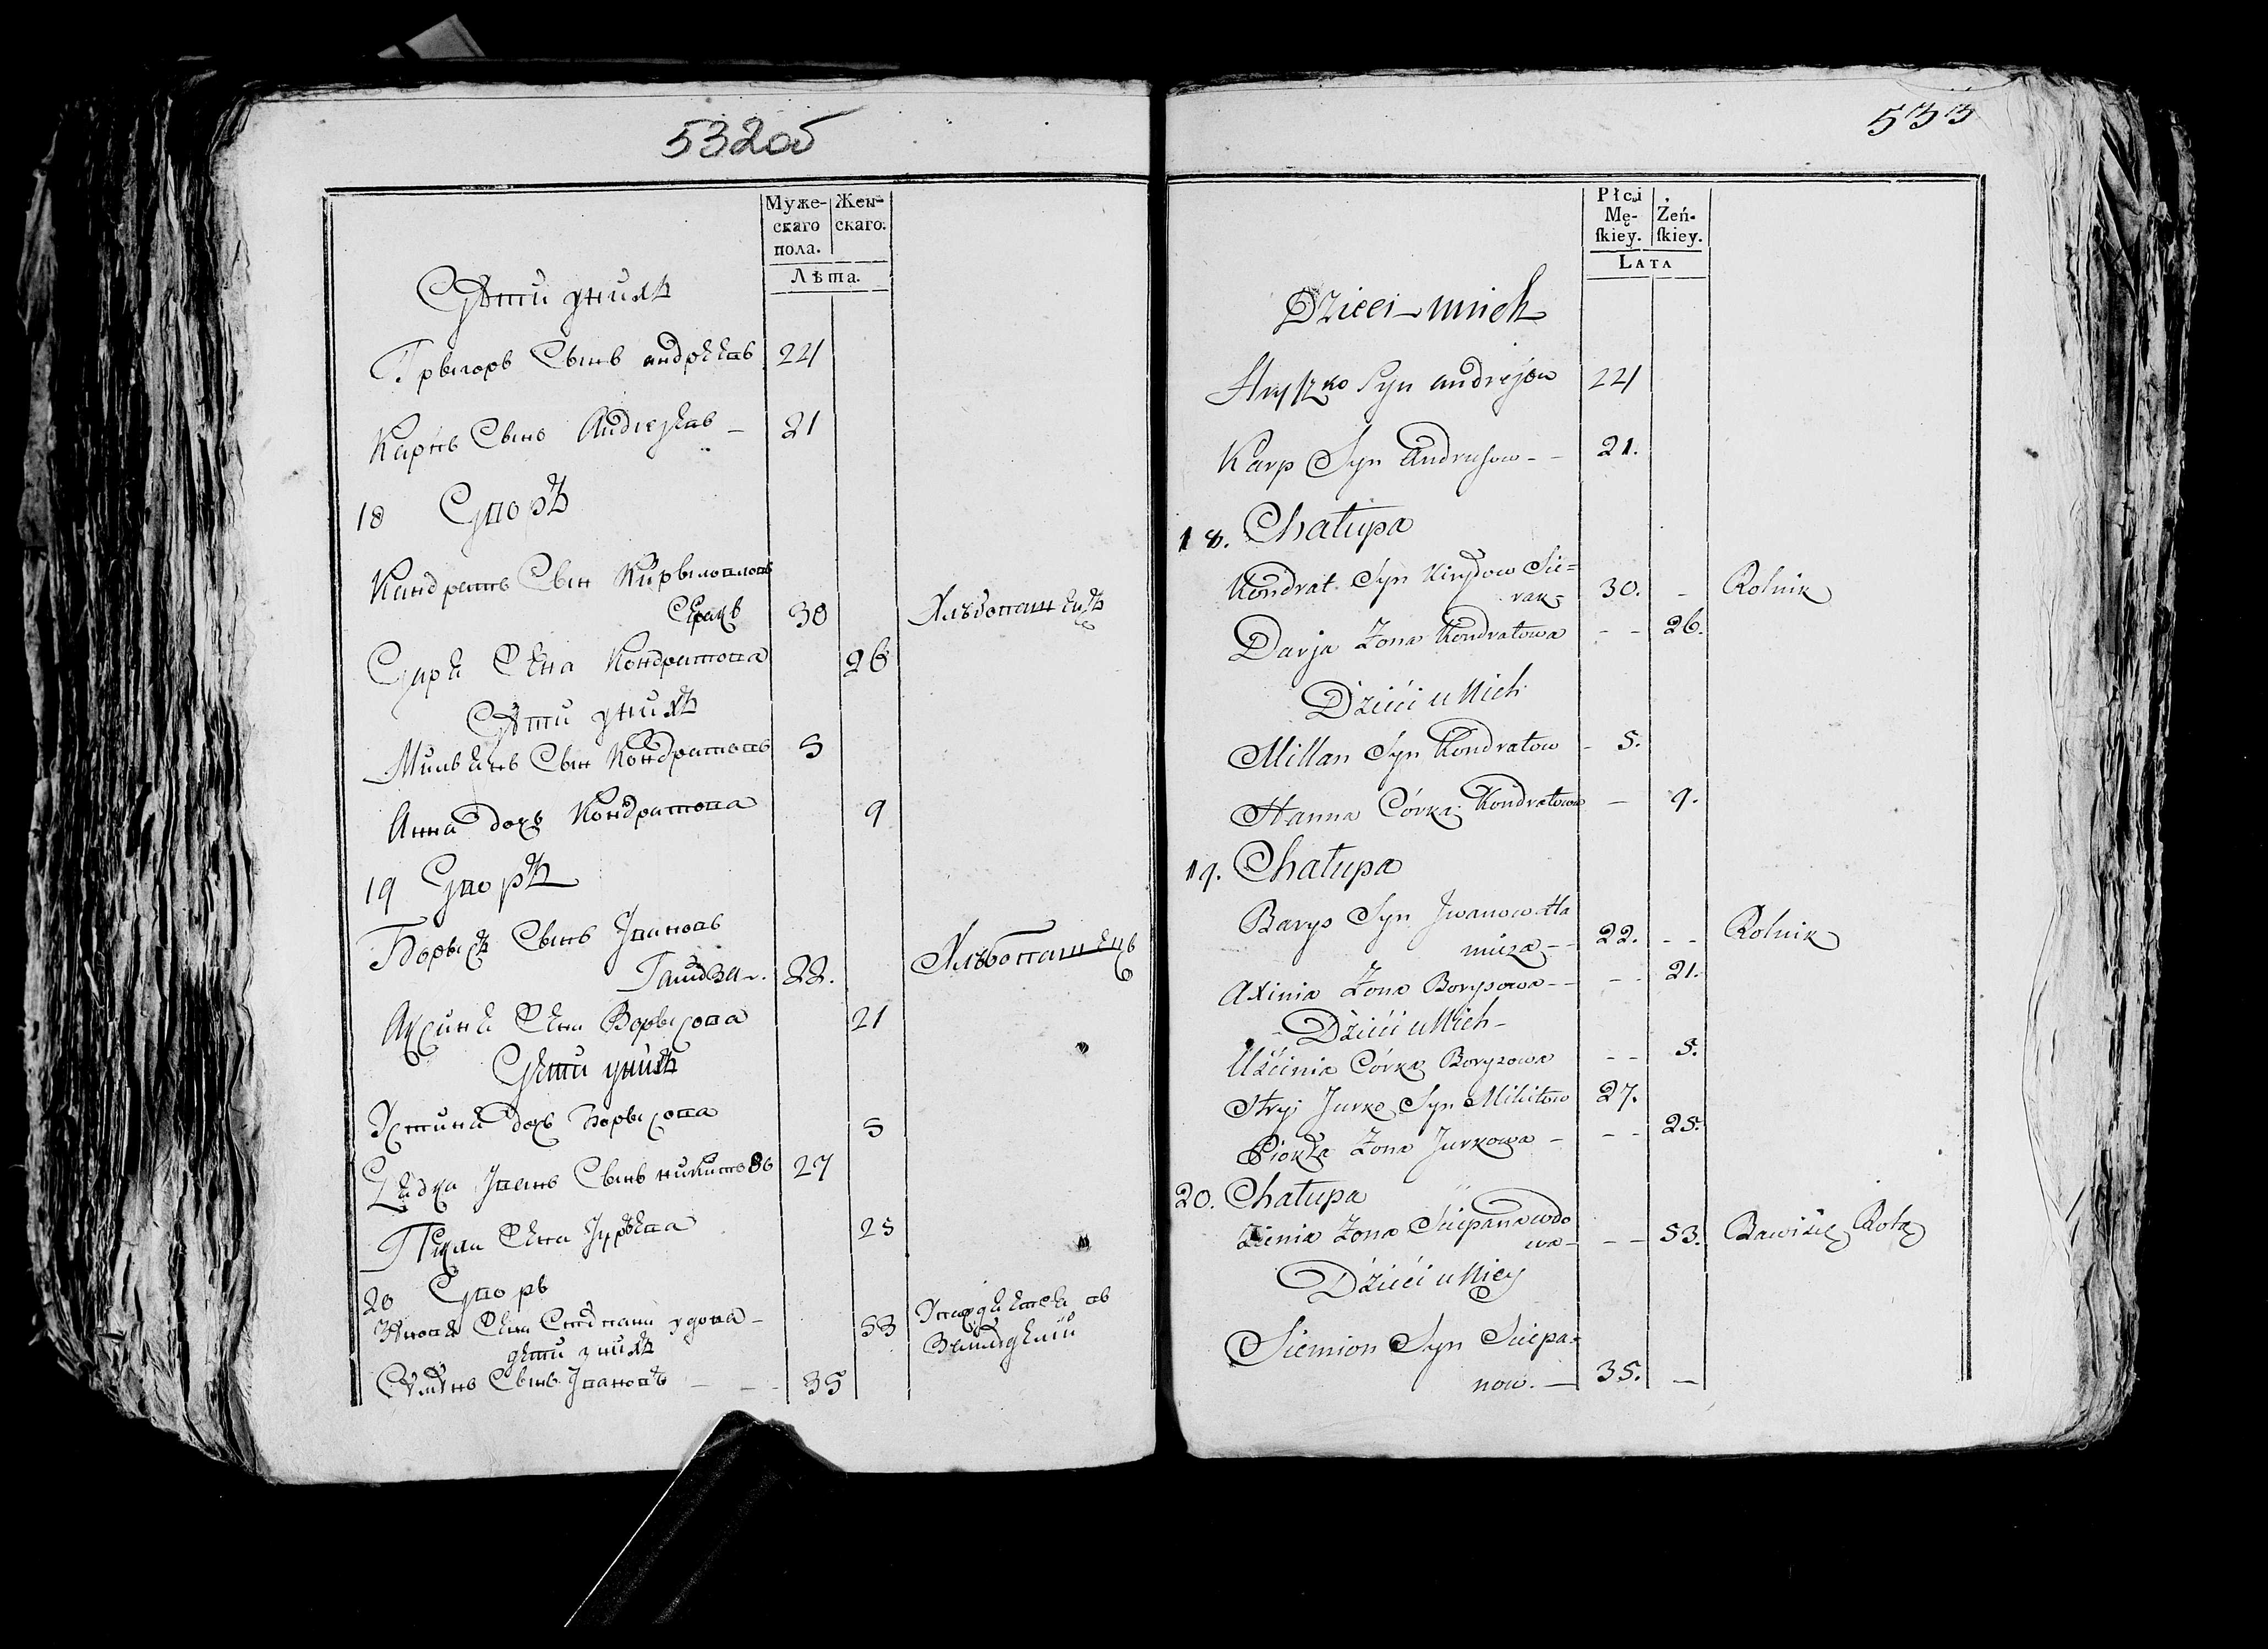 532об
Муже-
скаго
пола.
Жен-
скаго.
Лѣта.
Дѣти унихъ
Грыгоръ Сынъ андреевъ 221
Карпъ Сынъ Андреевъ – 21
18 Дворъ
Кандратъ Сын Кирыловловъ
Серакъ 30 Хлѣбопашецъ
Даря Жена Кондратова 26
Дѣти унихъ
Сын Кондратовъ 5
Анна дочь Кондратова 9
19 Дворъ
Борысъ Сынъ Ивановъ
22. Хлѣбопашецъ
Аксиня Жена Борысова 21
Дѣти унихъ
Устиня дочь Борысова 5
Дядка Иванъ Сынъ никитовъ 27
Жена Юркова 25
20 Дворъ
Жена вдова – 53
дѣти унихъ
Сынъ Ивановъ – – – 35
533
Płci
Mę-
skiey.
Żeń-
skiey.
LATA
Dzieci unich
Hryszko Syn andrejów 221
Karp Syn Andrusow – – 21.
18. Chałupa
Kondrat Syn Kiryłow Sie=
rak 30. – Rolnik
Darja Żona Kondratowa – – 26.
Dzieci u Nich
Millan Syn Kondratow – 5.
Hanna Córka Kondratowa – 9.
19. Chałupa
Barys Syn Jwanow Ha
muza – – 22. – – Rolnik
Axinia Żona Borysowa – – – – 21.
Dzieci u Nich –
Uścinia Córka Borysowa – – 5.
Stryj Jurko Syn Mikitow 27.
Żona Jurkowa – – – 25.
20. Chałupa
Zienia Żona Sciepanawdo
wa – – – 53. Bawi się Rolą
Dzieci u Niey
Siemion Syn Sciepa=
now. – 35. –